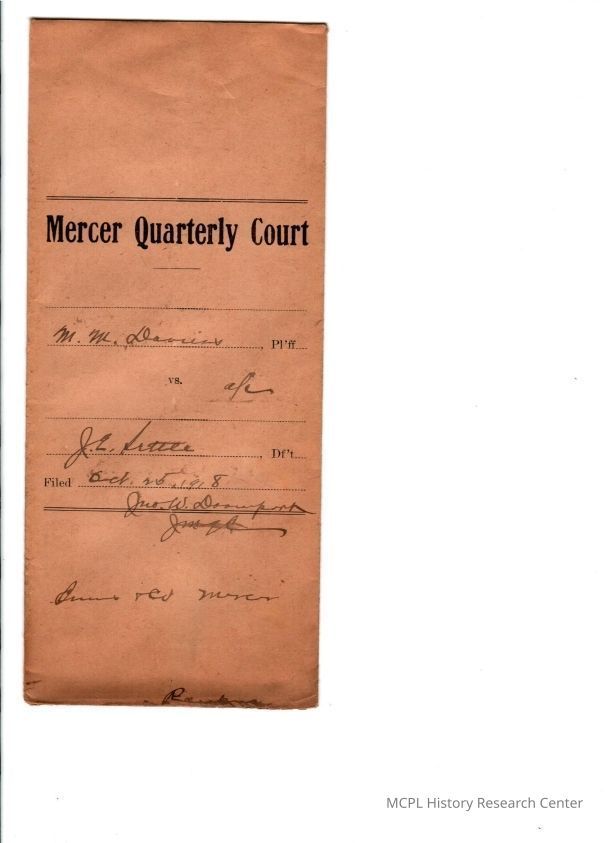 Mercer Quarterly Court
M. M. Daviess, Pl'ff.
vs. a/c
J. E. Settle, Df't.
Filed Oct. 25, 1918
Jno. W. Davenport
Summs & Co Mercer
MCPL History Research Center